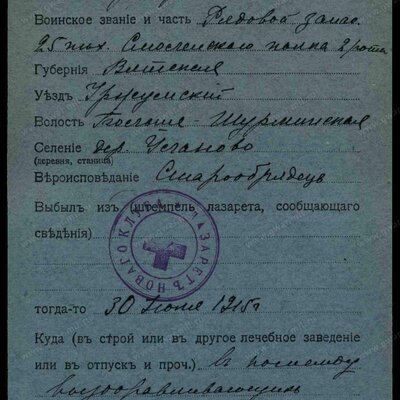 Воинское званіе и часть Рядовой запас.
25 пѣх. Смоленскаго полка 2 роты
Губернія Вятская
Уѣздъ Уржумскій
Волость Больше-Шурминская
Селеніе дер.
(деревня, станица)
Вѣроисповѣданіе Старообрядецъ
Выбылъ изъ (штемпель лазарета, сообщающаго
свѣдѣнія)
ЛАЗАРЕТЪ НОВАГО КЛУБА
тогда-то 30 Іюня 1915 г
Куда (въ строй или въ другое лечебное заведеніе
или въ отпускъ и проч.) въ команду
выздоравливающихъ